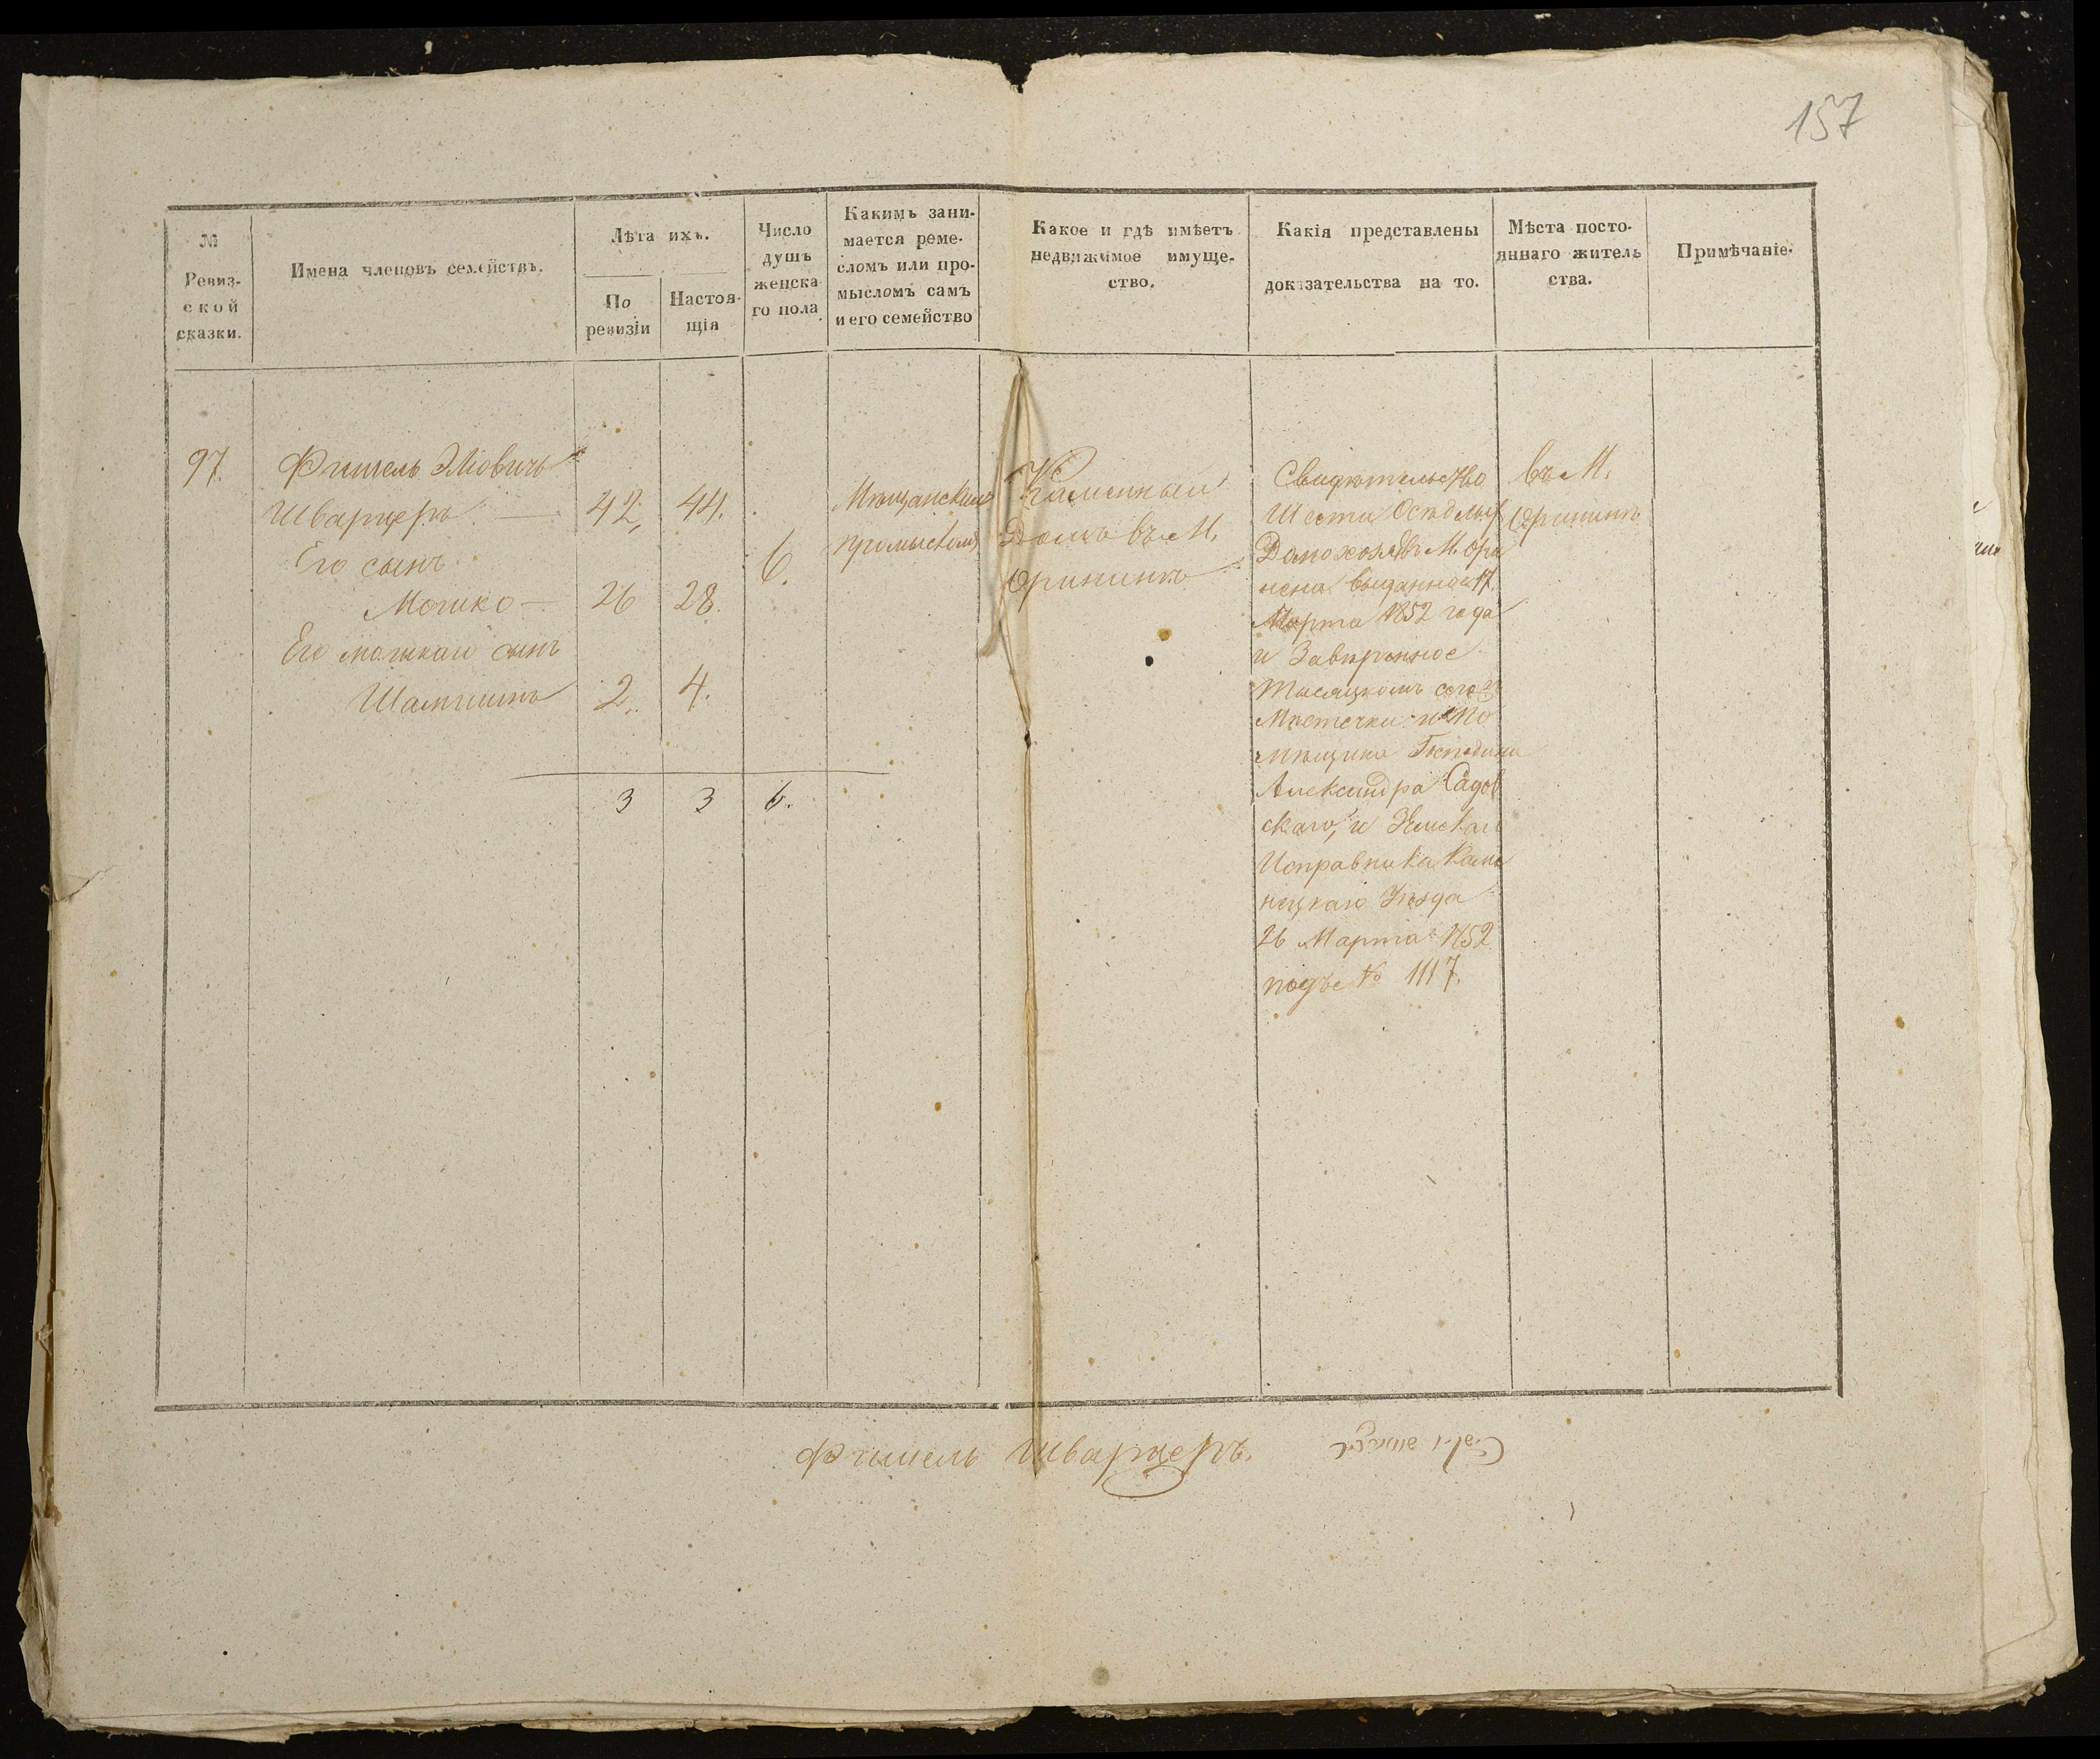 157
№
Ревиз-
ской
сказки.
Имена членовъ семействъ.
Лѣта ихъ.
По
ревизіи
Настоя-
щія
Число
душъ
женска
го пола
Какимъ зани-
мается реме-
сломъ или про-
мысломъ самъ
и его семейство
Какое и гдѣ имѣетъ
недвижимое имуще-
ство.
Какія представлены
доказательства на то.
Мѣста посто-
яннаго житель
ства.
Примѣчаніе.
97.
Фишель Эліовичъ
Шварцеръ — 42, 44.
Его сынъ
Мошко — 26 28.
Его мошкаго сынъ
2. 4.
6.
Мѣщанскимъ
промысломъ
Каменный
Домъ въ М.
Орининѣ
Свидѣтельство
Шести Осѣдлых
Домохозяевъ М. Ори
нена выданное 17
Марта 1852 года
и Завѣренное
Тысяцкомъ сего
Мѣстечка и По
мѣщика Господина
Александра Садов
скаго, и Земскаго
Исправника Каме
нецкаго Уезда
26 Марта 1852
подъ № 1117.
въ М.
Орининѣ
3 3 6.
Фишель Шварцеръ.